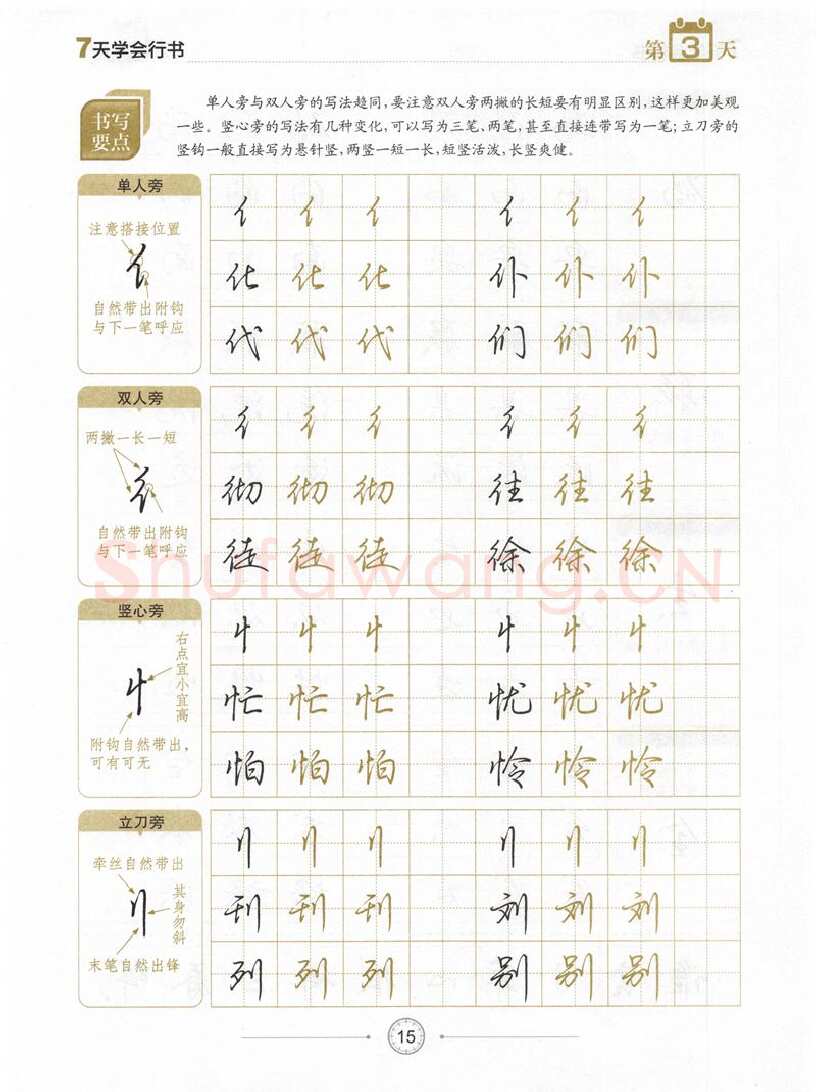 7天学会行书
第3天
书写要点
单人旁与双人旁的写法趋同,要注意双人旁两撇的长短要有明显区别,这样更加美观
一些。竖心旁的写法有几种变化,可以写为三笔、两笔,甚至直接连带写为一笔;立刀旁的
竖钩一般直接写为悬针竖,两竖一短一长,短竖活泼,长竖爽健。
单人旁
注意搭接位置
亻
自然带出附钩
与下一笔呼应
亻 亻 亻 亻 亻 亻
化 化 化 仆 仆 仆
代 代 代 们 们 们
双人旁
两撇一长一短
彳
自然带出附钩
与下一笔呼应
彳 彳 彳 彳 彳 彳
彻 彻 彻 往 往 往
徒 徒 徒 徐 徐 徐
Shufawang.CN
竖心旁
右点宜小宜高
忄
附钩自然带出,
可有可无
忄 忄 忄 忄 忄 忄
忙 忙 忙 忧 忧 忧
怕 怕 怕 怜 怜 怜
立刀旁
牵丝自然带出
刂
其身勿斜
末笔自然出锋
刂 刂 刂 刂 刂 刂
刊 刊 刊 刘 刘 刘
列 列 列 别 别 别
15